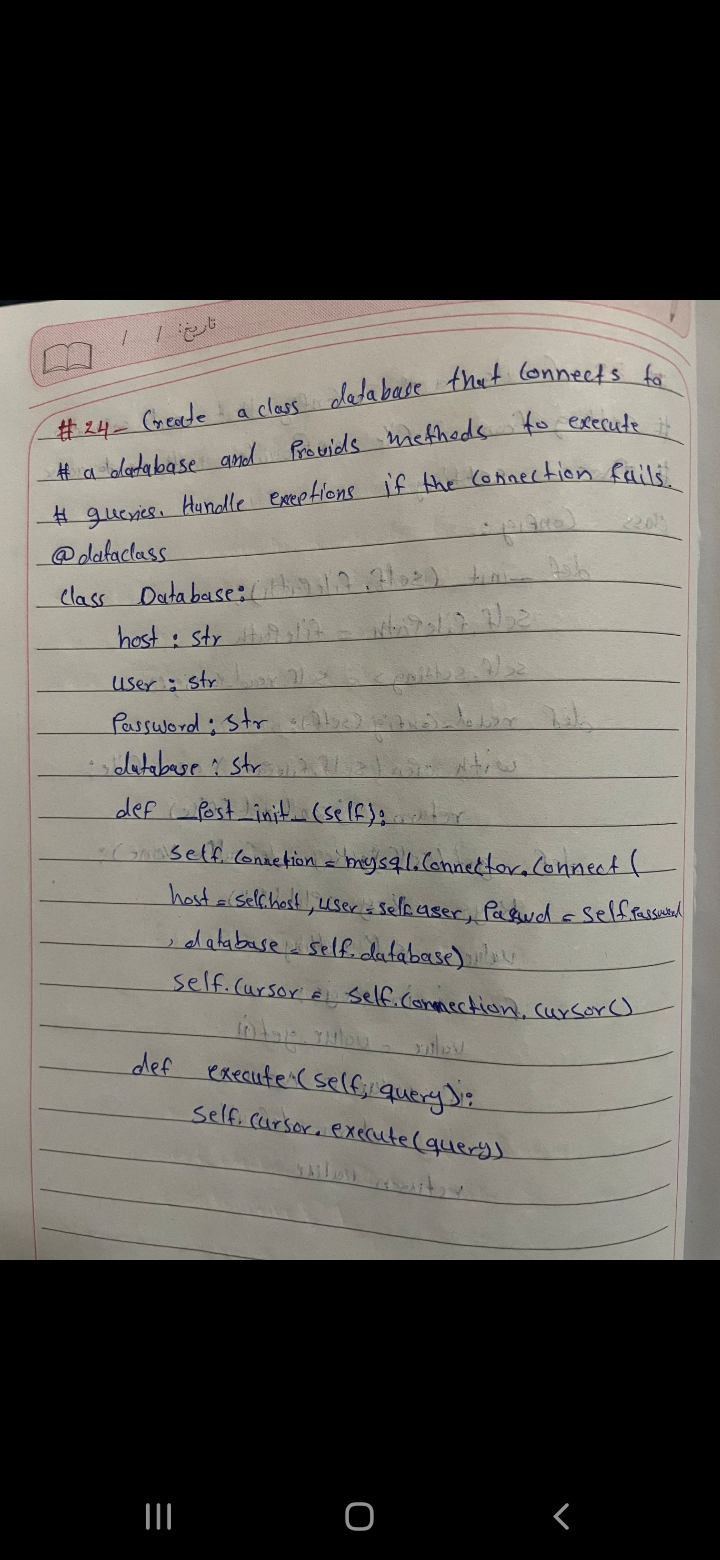 تاریخ: / /
# 24- Create a class database that connects to
# a database and Provids methods to execute
# queries. Handle exeptions if the connection fails.
@dataclass
class Database:
host : str
user : str
Password : str
database : str
def _Post_init_(self):
self.connetion = mysql.connector.connect(
host = self.host, user = self.user, Passwd = self.Password
, database = self.database)
self.cursor = self.connection.cursor()
def execute(self, query):
self.cursor.execute(query)